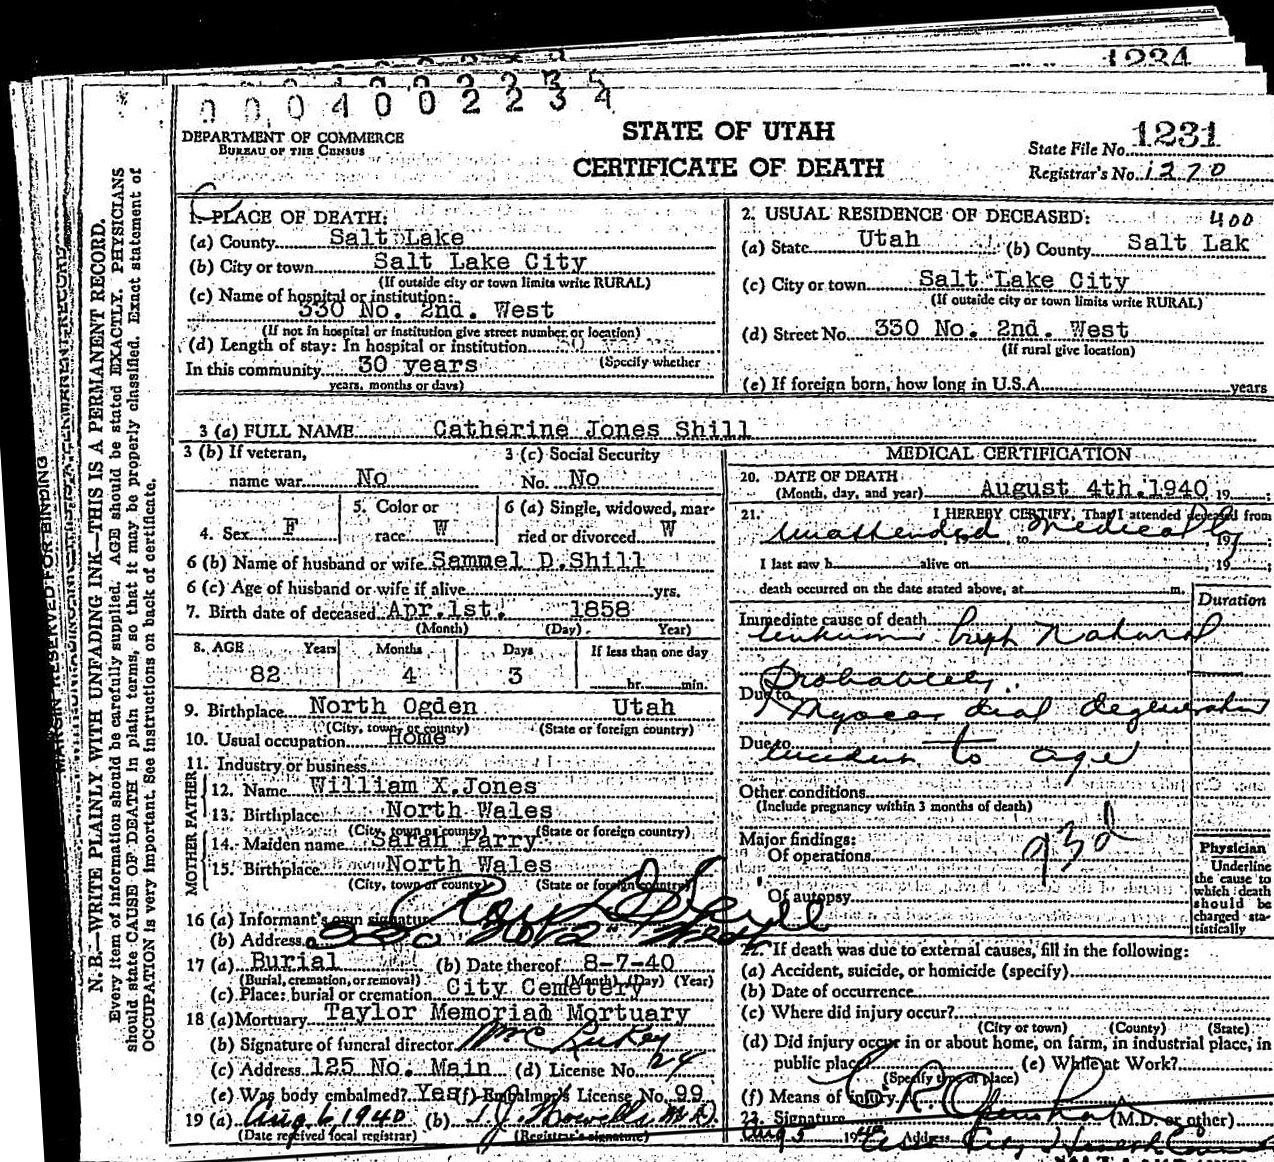 1234
0 0 0 4 0 0 2 2 3 4
DEPARTMENT OF COMMERCE
BUREAU OF THE CENSUS
STATE OF UTAH
CERTIFICATE OF DEATH
State File No. 1231
Registrar's No. 1270
1. PLACE OF DEATH:
(a) County Salt Lake
(b) City or town Salt Lake City
(If outside city or town limits write RURAL)
(c) Name of hospital or institution:
330 No. 2nd. West
(If not in hospital or institution give street number or location)
(d) Length of stay: In hospital or institution
(Specify whether
In this community 30 years
years, months or days)
2. USUAL RESIDENCE OF DECEASED: 400
(a) State Utah (b) County Salt Lak
(c) City or town Salt Lake City
(If outside city or town limits write RURAL)
(d) Street No. 330 No. 2nd. West
(If rural give location)
(e) If foreign born, how long in U.S.A. years
3 (a) FULL NAME Catherine Jones Shill
3 (b) If veteran,
name war No
3 (c) Social Security
No. No
4. Sex F
5. Color or
race W
6 (a) Single, widowed, mar-
ried or divorced W
6 (b) Name of husband or wife Sammel D.Shill
6 (c) Age of husband or wife if alive yrs.
7. Birth date of deceased Apr.1st. 1858
(Month) (Day) Year)
8. AGE Years Months Days If less than one day
82 4 3 hr. min.
9. Birthplace North Ogden Utah
(City, town or county) (State or foreign country)
10. Usual occupation Home
11. Industry or business
FATHER
12. Name William X.Jones
13. Birthplace North Wales
(City, town or county) (State or foreign country)
MOTHER
14. Maiden name Sarah Parry
15. Birthplace North Wales
(City, town or county) (State or foreign country)
16 (a) Informant's own signature
(b) Address
17 (a) Burial (b) Date thereof 8-7-40
(Burial, cremation, or removal) (Month) (Day) (Year)
(c) Place: burial or cremation City Cemetery
18 (a) Mortuary Taylor Memorial Mortuary
(b) Signature of funeral director
(c) Address 125 No. Main (d) License No. 24
(e) Was body embalmed? Yes (f) Embalmer's License No. 99
19 (a) Aug 6 1940 (b) T. J. Howells M.D.
(Date received local registrar) (Registrar's signature)
MEDICAL CERTIFICATION
20. DATE OF DEATH
(Month, day, and year) August 4th.1940 19
21. I HEREBY CERTIFY, That I attended deceased from
unattended to medically 19
I last saw h alive on 19
death occurred on the date stated above, at m.
Duration
Immediate cause of death
unknown but natural
probably
Due to
myocardial degeneration
Due to
incident to age
Other conditions
(Include pregnancy within 3 months of death)
Major findings:
Of operations 93d
Of autopsy
Physician
Underline
the cause to
which death
should be
charged sta-
tistically
22. If death was due to external causes, fill in the following:
(a) Accident, suicide, or homicide (specify)
(b) Date of occurrence
(c) Where did injury occur?
(City or town) (County) (State)
(d) Did injury occur in or about home, on farm, in industrial place, in
public place (e) While at Work?
(Specify type of place)
(f) Means of injury
23. Signature (M.D. or other)
Aug 5 1940 Address
MARGIN RESERVED FOR BINDING
N. B.—WRITE PLAINLY WITH UNFADING INK—THIS IS A PERMANENT RECORD.
Every item of information should be carefully supplied. AGE should be stated EXACTLY. PHYSICIANS
should state CAUSE OF DEATH in plain terms, so that it may be properly classified. Exact statement of
OCCUPATION is very important. See instructions on back of certificate.